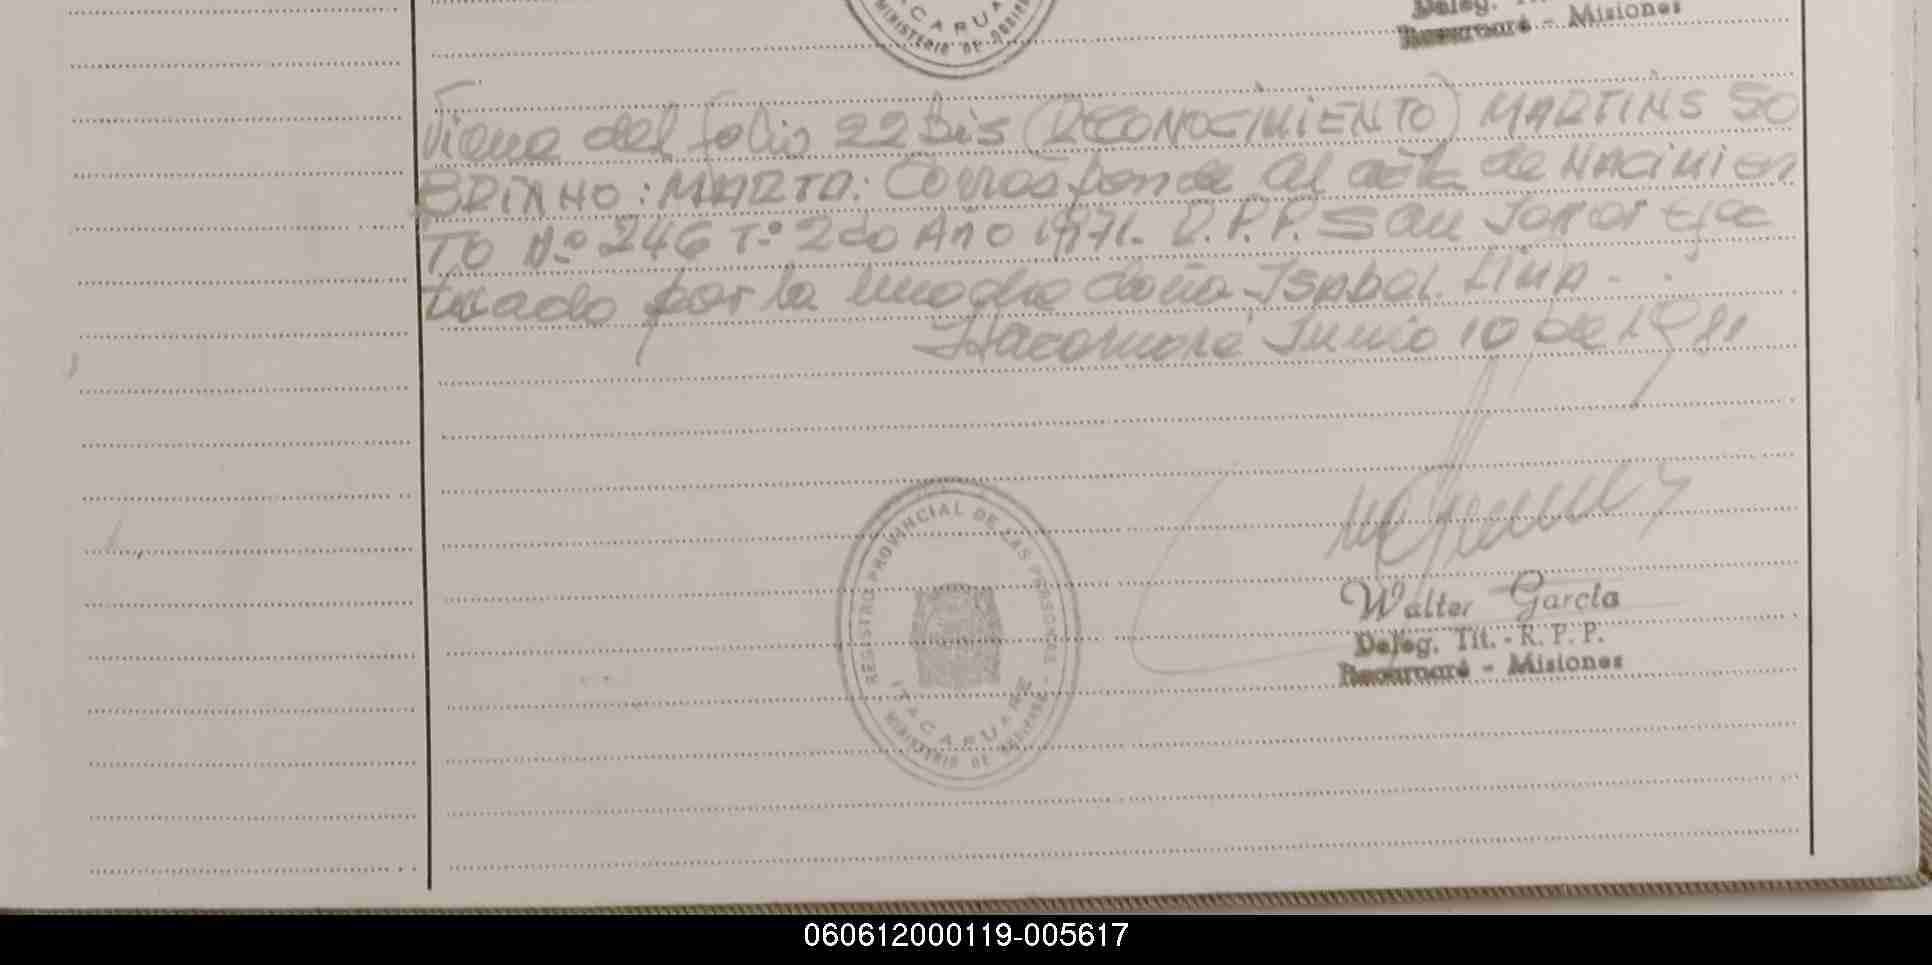 MINISTERIO DE GOBIERNO
Deleg. Tit.
Itacaruaré - Misiones
Viene del folio 22 Bis (RECONOCIMIENTO) MARTINS SO
BRINHO: MARTA: Corresponde al acta de NACIMIEN
TO Nº 246 Tº 2do AÑO 1971. R.P.P. San Javier efec
tuado por la madre doña Isabel LIMA -
Itacaruaré Junio 10 de 1981
REGISTRO PROVINCIAL DE LAS PERSONAS
ITACARUARE
MINISTERIO DE GOBIERNO
Walter García
Deleg. Tit. - R. P. P.
Itacaruaré - Misiones
060612000119-005617